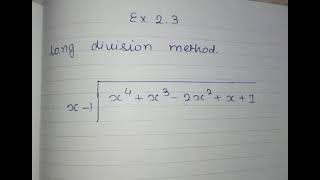 Ex 2.3
long division method.
x-1 x⁴ + x³ - 2x² + x + 1